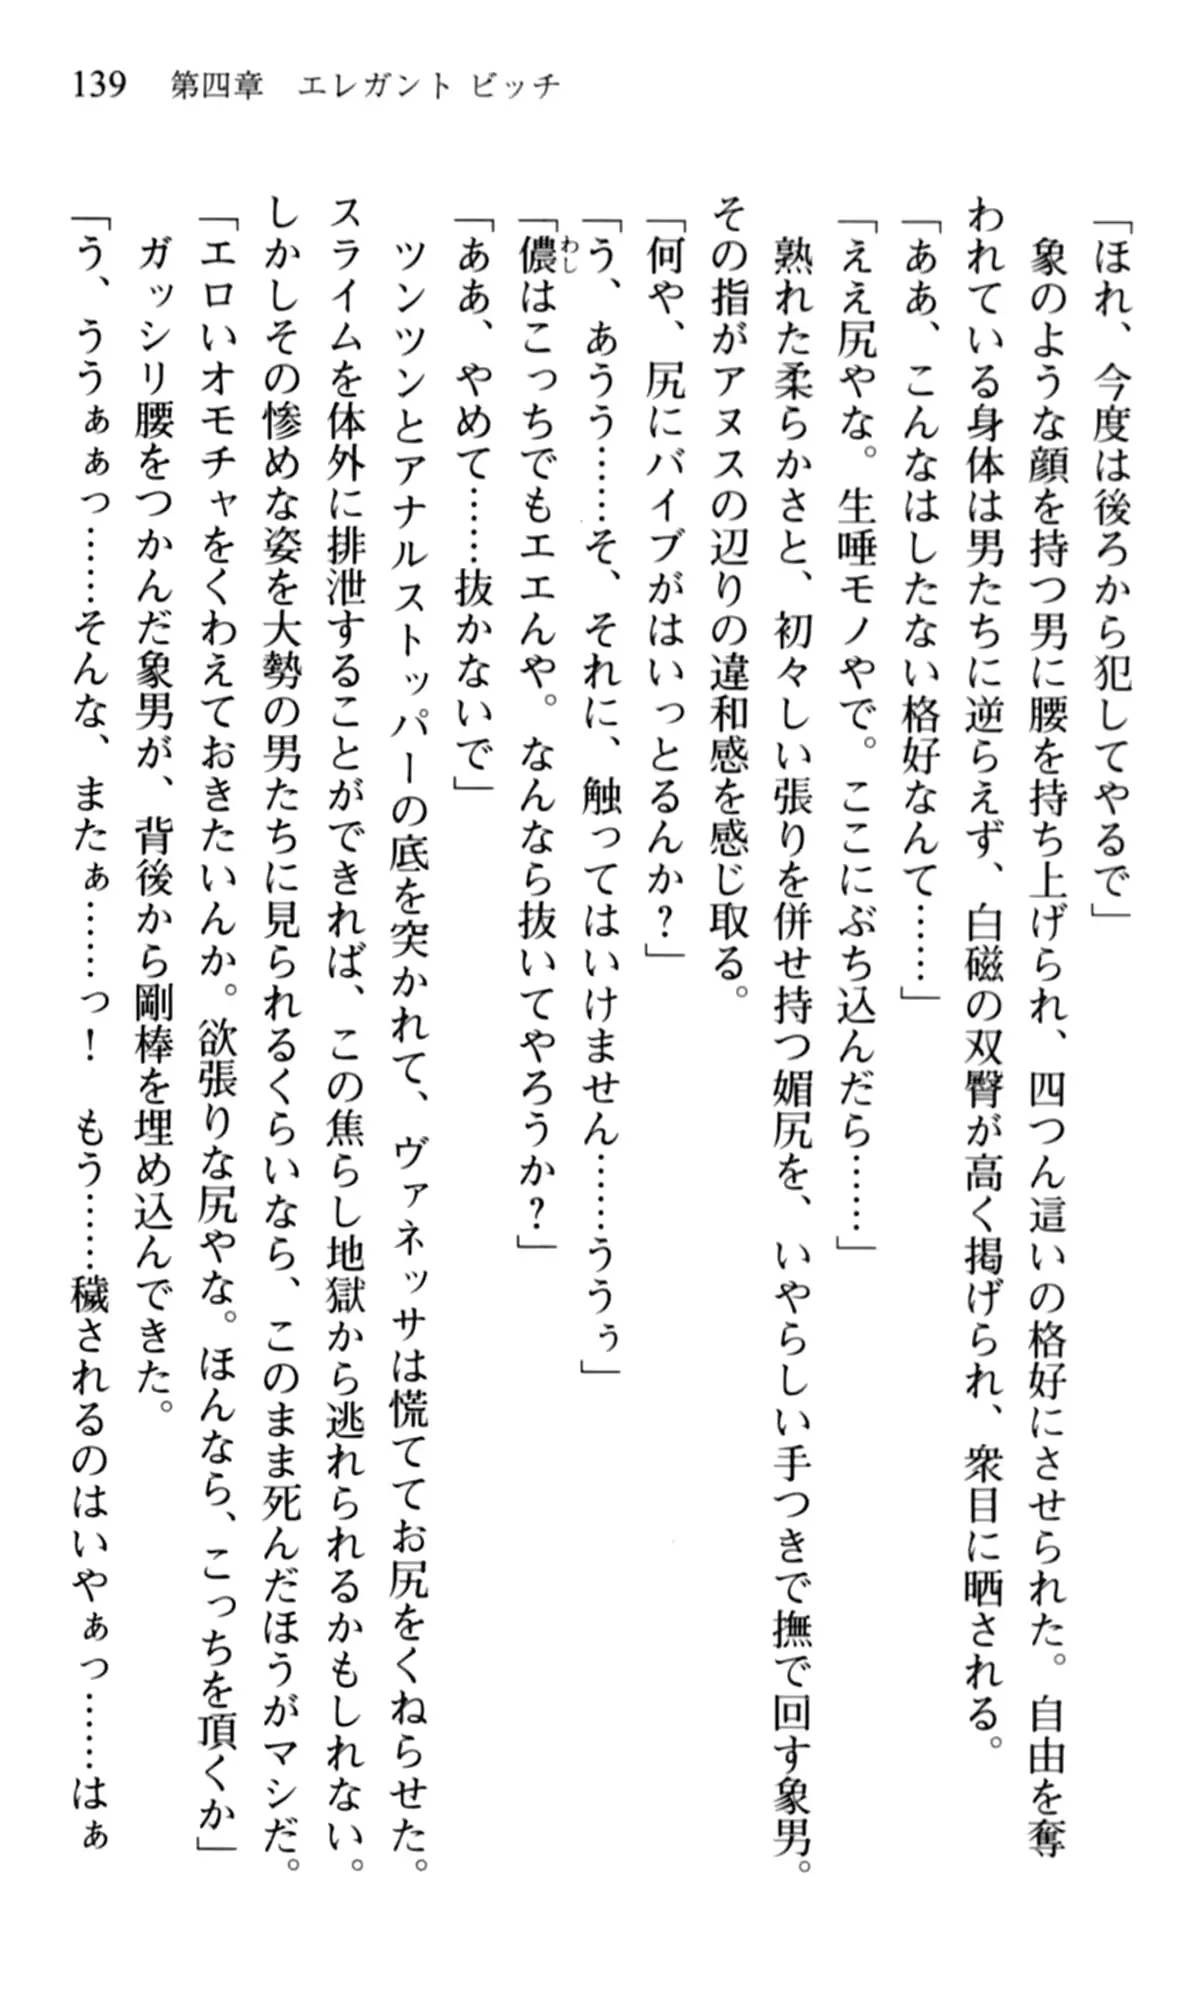 139 第四章 エレガント ビッチ
「ほれ、今度は後ろから犯してやるで」
象のような顔を持つ男に腰を持ち上げられ、四つん這いの格好にさせられた。自由を奪
われている身体は男たちに逆らえず、白磁の双臀が高く掲げられ、衆目に晒される。
「ああ、こんなはしたない格好なんて……」
「ええ尻やな。生唾モノやで。ここにぶち込んだら……」
熟れた柔らかさと、初々しい張りを併せ持つ媚尻を、いやらしい手つきで撫で回す象男。
その指がアヌスの辺りの違和感を感じ取る。
「何や、尻にバイブがはいっとるんか？」
「う、あうう……そ、それに、触ってはいけません……ううぅ」
「儂わしはこっちでもエエんや。なんなら抜いてやろうか？」
「ああ、やめて……抜かないで」
ツンツンとアナルストッパーの底を突かれて、ヴァネッサは慌ててお尻をくねらせた。
スライムを体外に排泄することができれば、この焦らし地獄から逃れられるかもしれない。
しかしその惨めな姿を大勢の男たちに見られるくらいなら、このまま死んだほうがマシだ。
「エロいオモチャをくわえておきたいんか。欲張りな尻やな。ほんなら、こっちを頂くか」
ガッシリ腰をつかんだ象男が、背後から剛棒を埋め込んできた。
「う、ううぁぁっ……そんな、またぁ……っ！　もう……穢されるのはいやぁっ……はぁ